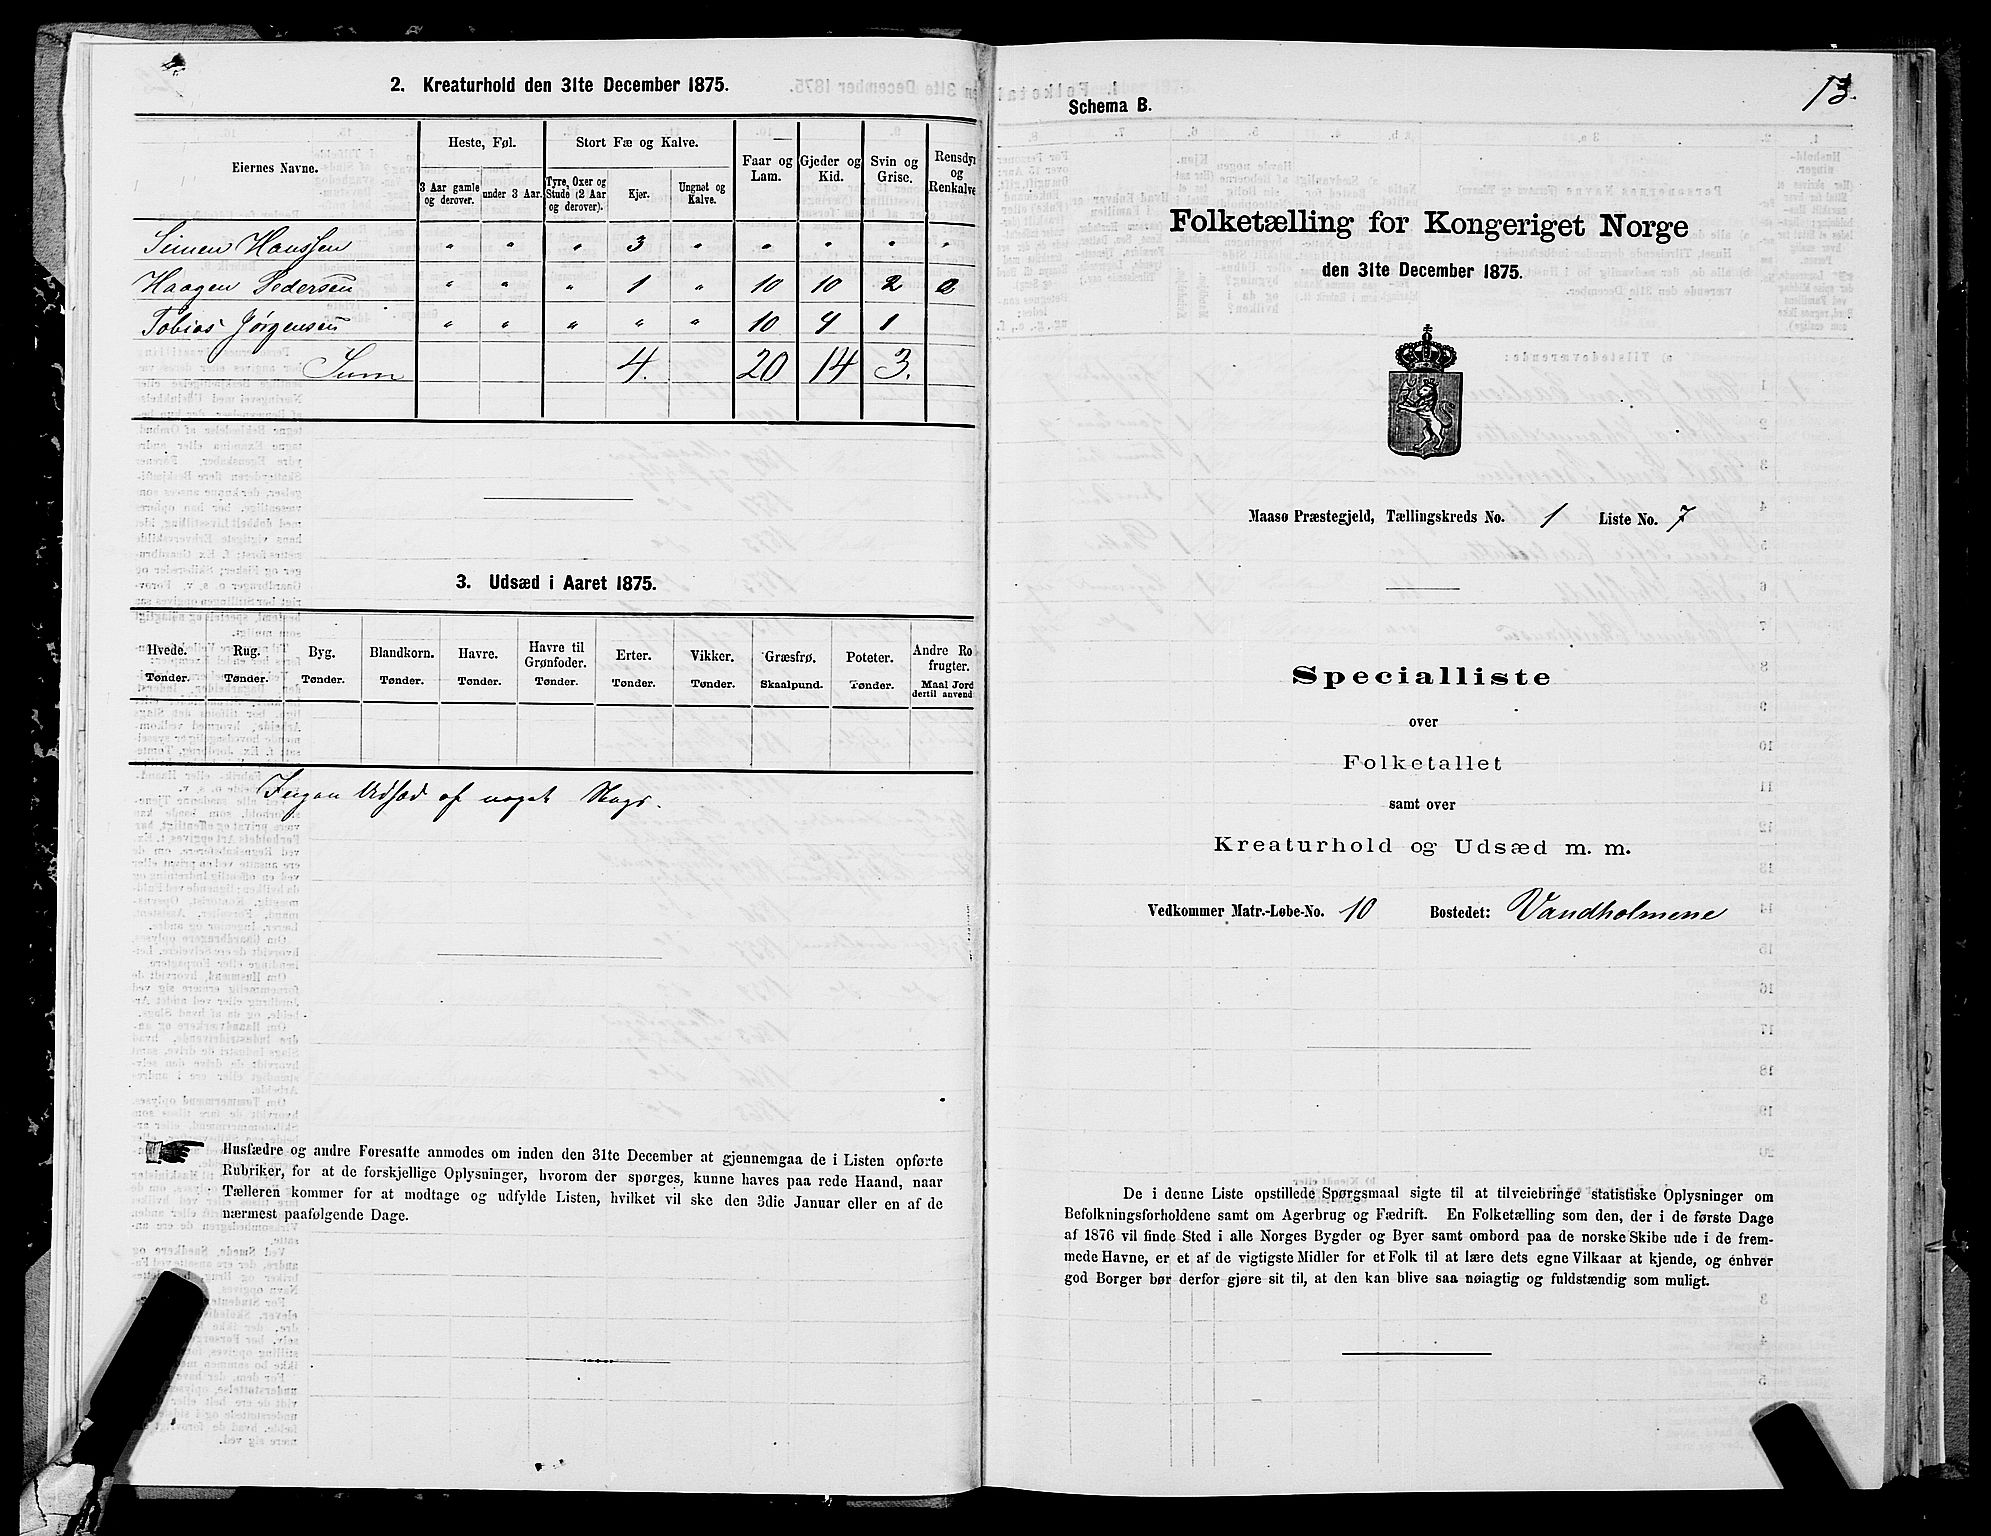 2. Kreaturhold den 31te December 1875.
Eiernes Navne.
Heste, Føl.
Stort Fæ og Kalve.
Faar og Lam.
Gjeder og Kid.
Svin og Grise.
Rensdyr og Renkalve
3 Aar gamle og derover.
under 3 Aar.
Tyre, Oxer og Stude (2 Aar og derover).
Kjør.
Ungnøt og Kalve.
Simen Hanssen " " " 3 " " " " "
Haagen Pedersen " " " 1 " 10 10 2 0
Tobias Jørgensen " " " " " 10 4 1
Sum 4. 20 14 3.
3. Udsæd i Aaret 1875.
Hvede. Tønder.
Rug. Tønder.
Byg. Tønder.
Blandkorn. Tønder.
Havre. Tønder.
Havre til Grønfoder. Tønder.
Erter. Tønder.
Vikker. Tønder.
Græsfrø. Skaalpund.
Poteter. Tønder.
Andre Ro frugter. Maal Jord dertil anvend
Ingen Udsæd af noget Slags.
Husfædre og andre Foresatte anmodes om inden den 31te December at gjennemgaa de i Listen opførte
Rubriker, for at de forskjellige Oplysninger, hvorom der spørges, kunne haves paa rede Haand, naar
Tælleren kommer for at modtage og udfylde Listen, hvilket vil ske den 3die Januar eller en af de
nærmest paafølgende Dage.
13.
Schema B.
Folketælling for Kongeriget Norge
den 31te December 1875.
Maasø Præstegjeld, Tællingskreds No. 1 Liste No. 7
Specialliste
over
Folketallet
samt over
Kreaturhold og Udsæd m. m.
Vedkommer Matr.-Løbe-No. 10 Bostedet: Vandholmene
De i denne Liste opstillede Spørgsmaal sigte til at tilveiebringe statistiske Oplysninger om
Befolkningsforholdene samt om Agerbrug og Fædrift. En Folketælling som den, der i de første Dage
af 1876 vil finde Sted i alle Norges Bygder og Byer samt ombord paa de norske Skibe ude i de frem-
mede Havne, er et af de vigtigste Midler for et Folk til at lære dets egne Vilkaar at kjende, og enhver
god Borger bør derfor gjøre sit til, at den kan blive saa nøiagtig og fuldstændig som muligt.